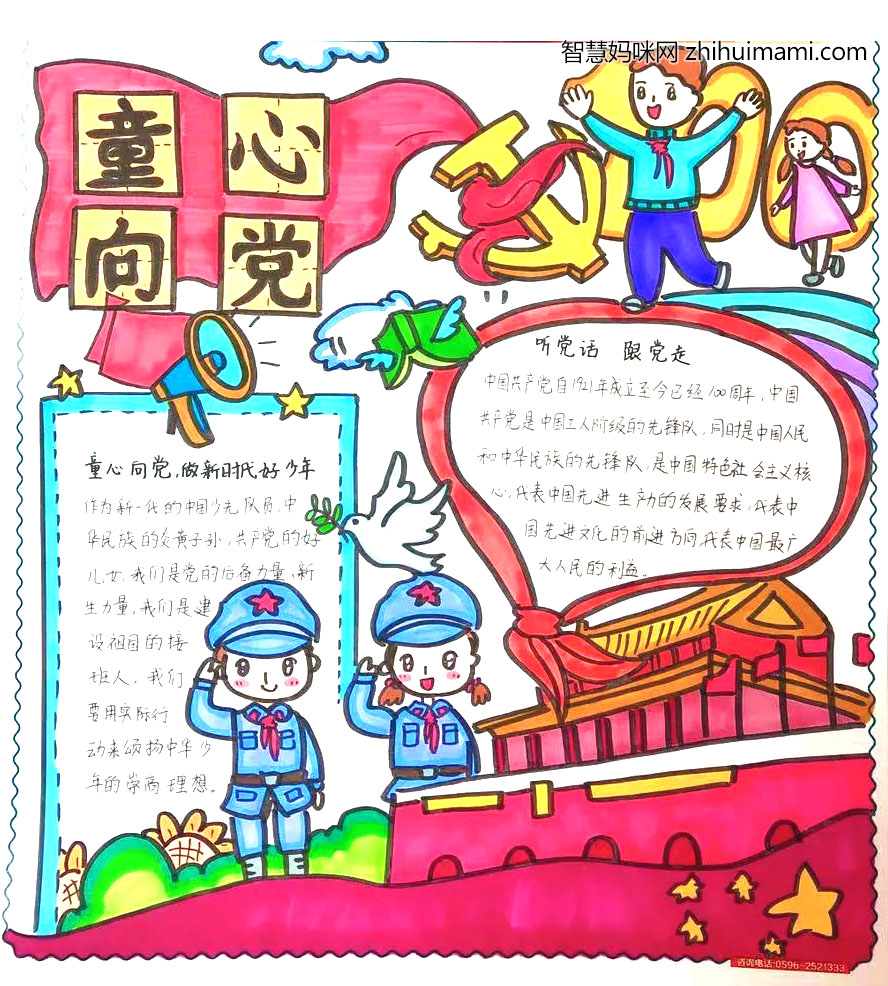 智慧妈咪网 zhihuimami.com
童心
向党
100
听党话 跟党走
中国共产党自1921年成立至今已经100周年，中国
共产党是中国工人阶级的先锋队，同时是中国人民
和中华民族的先锋队，是中国特色社会主义核
心，代表中国先进生产力的发展要求，代表中
国先进文化的前进方向，代表中国最广
大人民的利益。
童心向党，做新时代好少年
作为新一代的中国少先队员，中
华民族的炎黄子孙，共产党的好
儿女，我们是党的后备力量、新
生力量，我们是建
设祖国的接
班人，我们
要用实际行
动来颂扬中华少
年的崇高理想。
咨询电话:0596-2521333